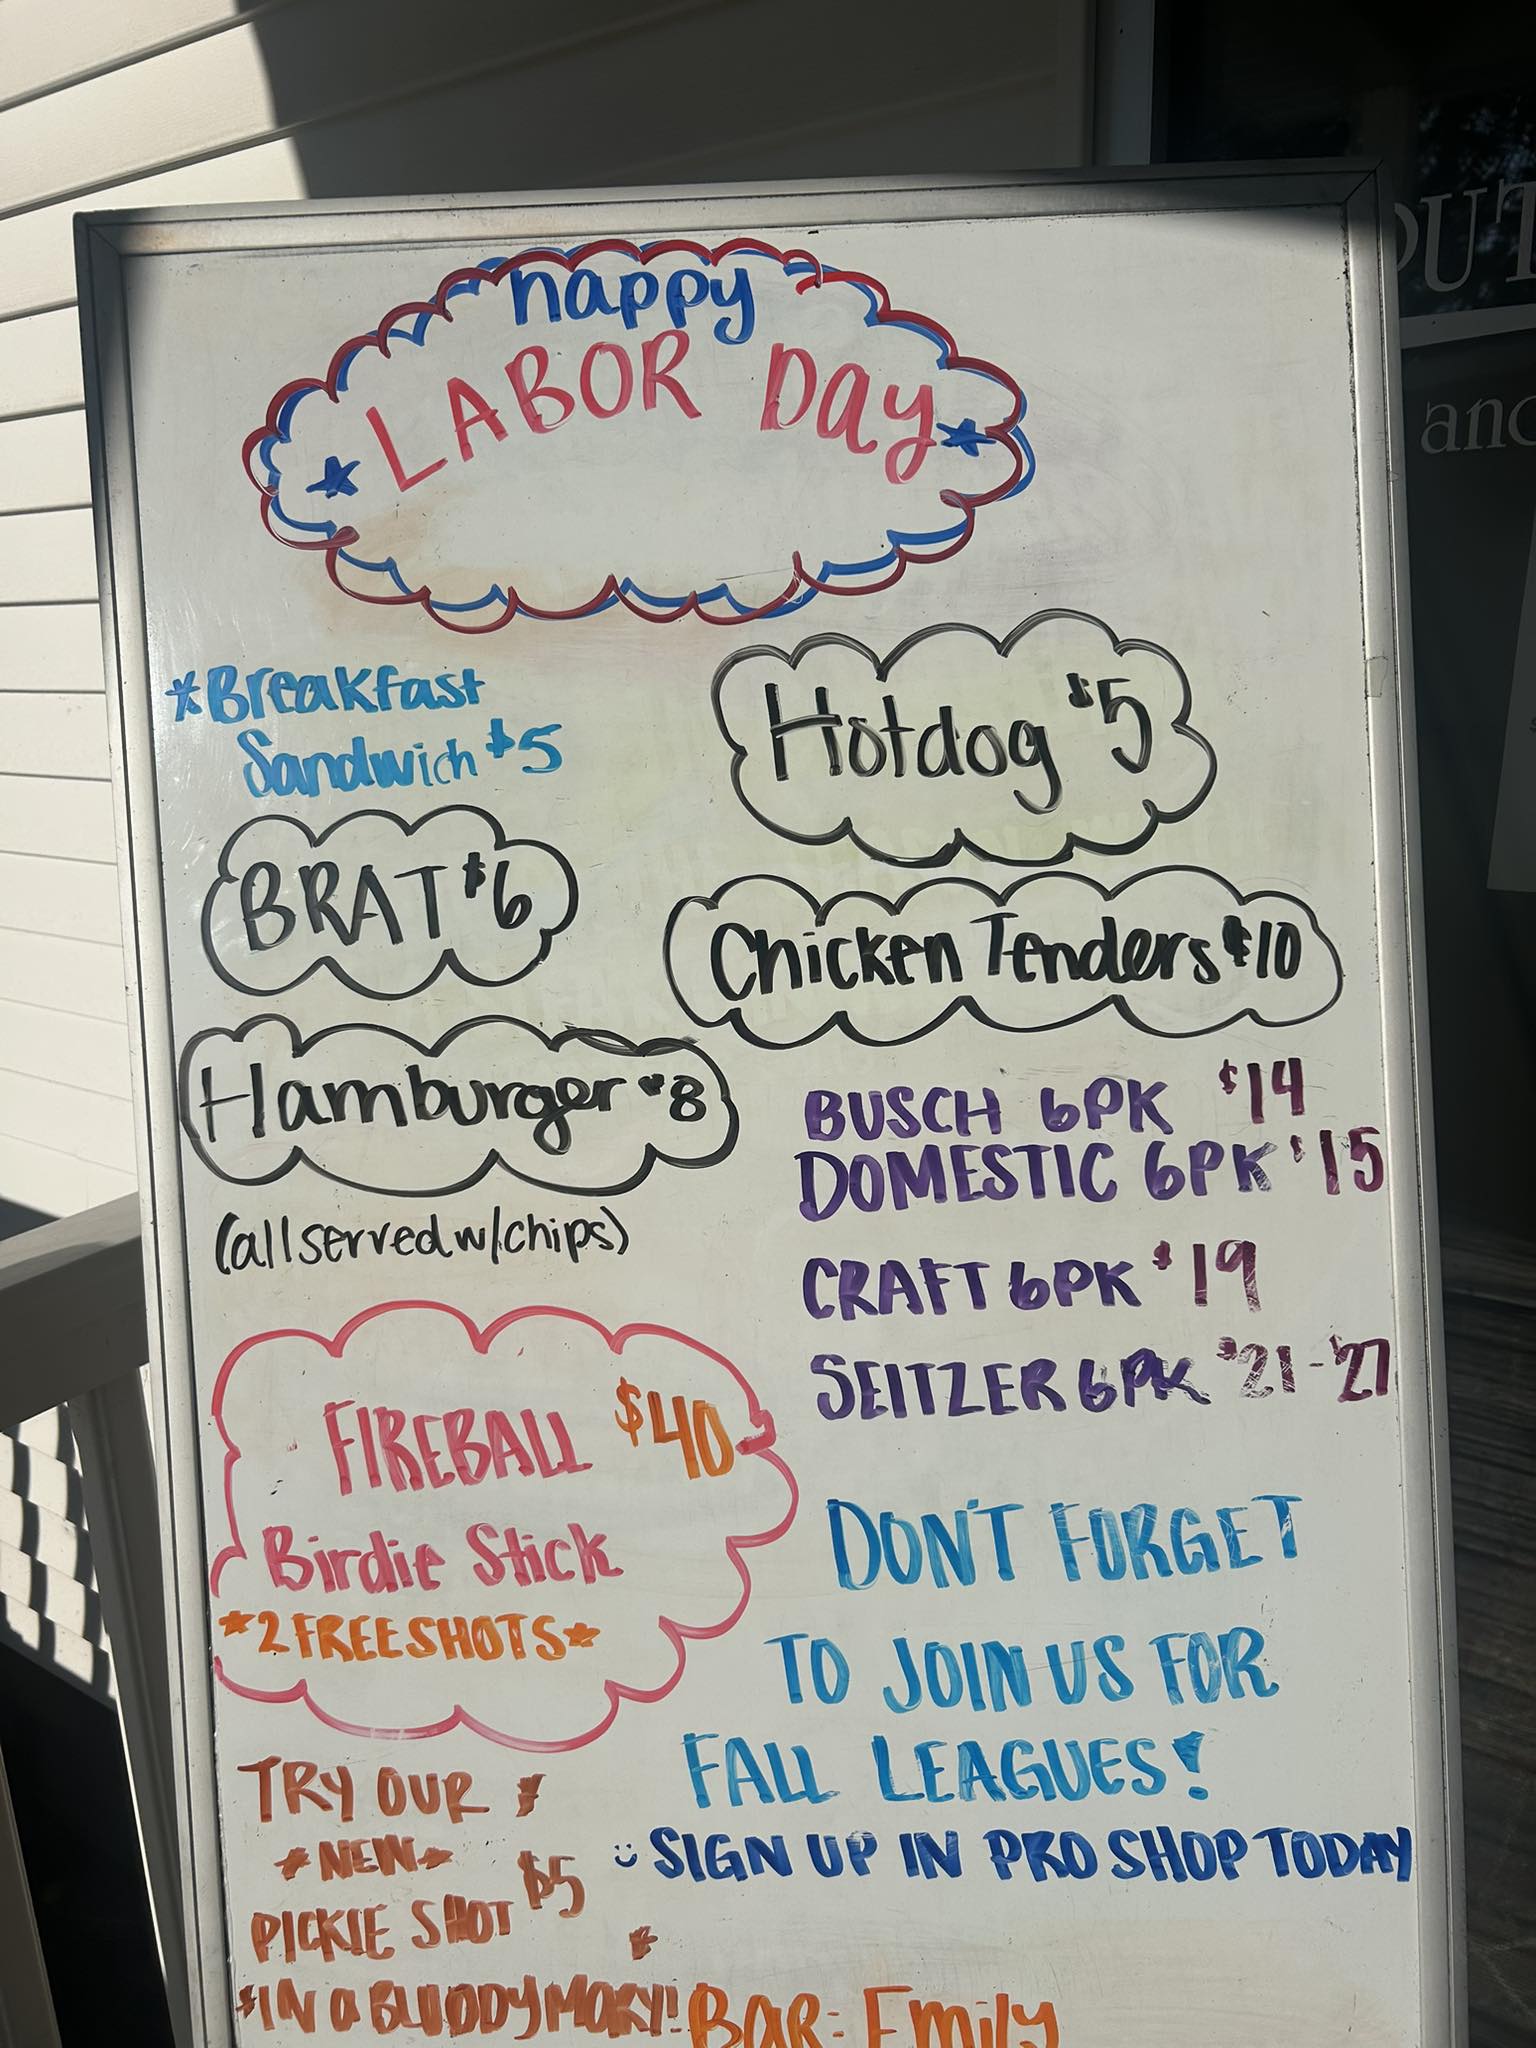 happy
LABOR Day
*Breakfast
Sandwich $5
Hotdog $5
BRAT $6
Chicken Tenders $10
Hamburger $8
(all served w/chips)
BUSCH 6PK $14
DOMESTIC 6PK $15
CRAFT 6PK $19
SEITZER 6PK $21-$27
FIREBALL $40
Birdie Stick
*2 FREE SHOTS*
DON'T FORGET
TO JOIN US FOR
FALL LEAGUES!
SIGN UP IN PRO SHOP TODAY
TRY OUR
*NEW*
PICKLE SHOT $5
*IN a BLOODY MARY!
BAR: Emily
OUT
and